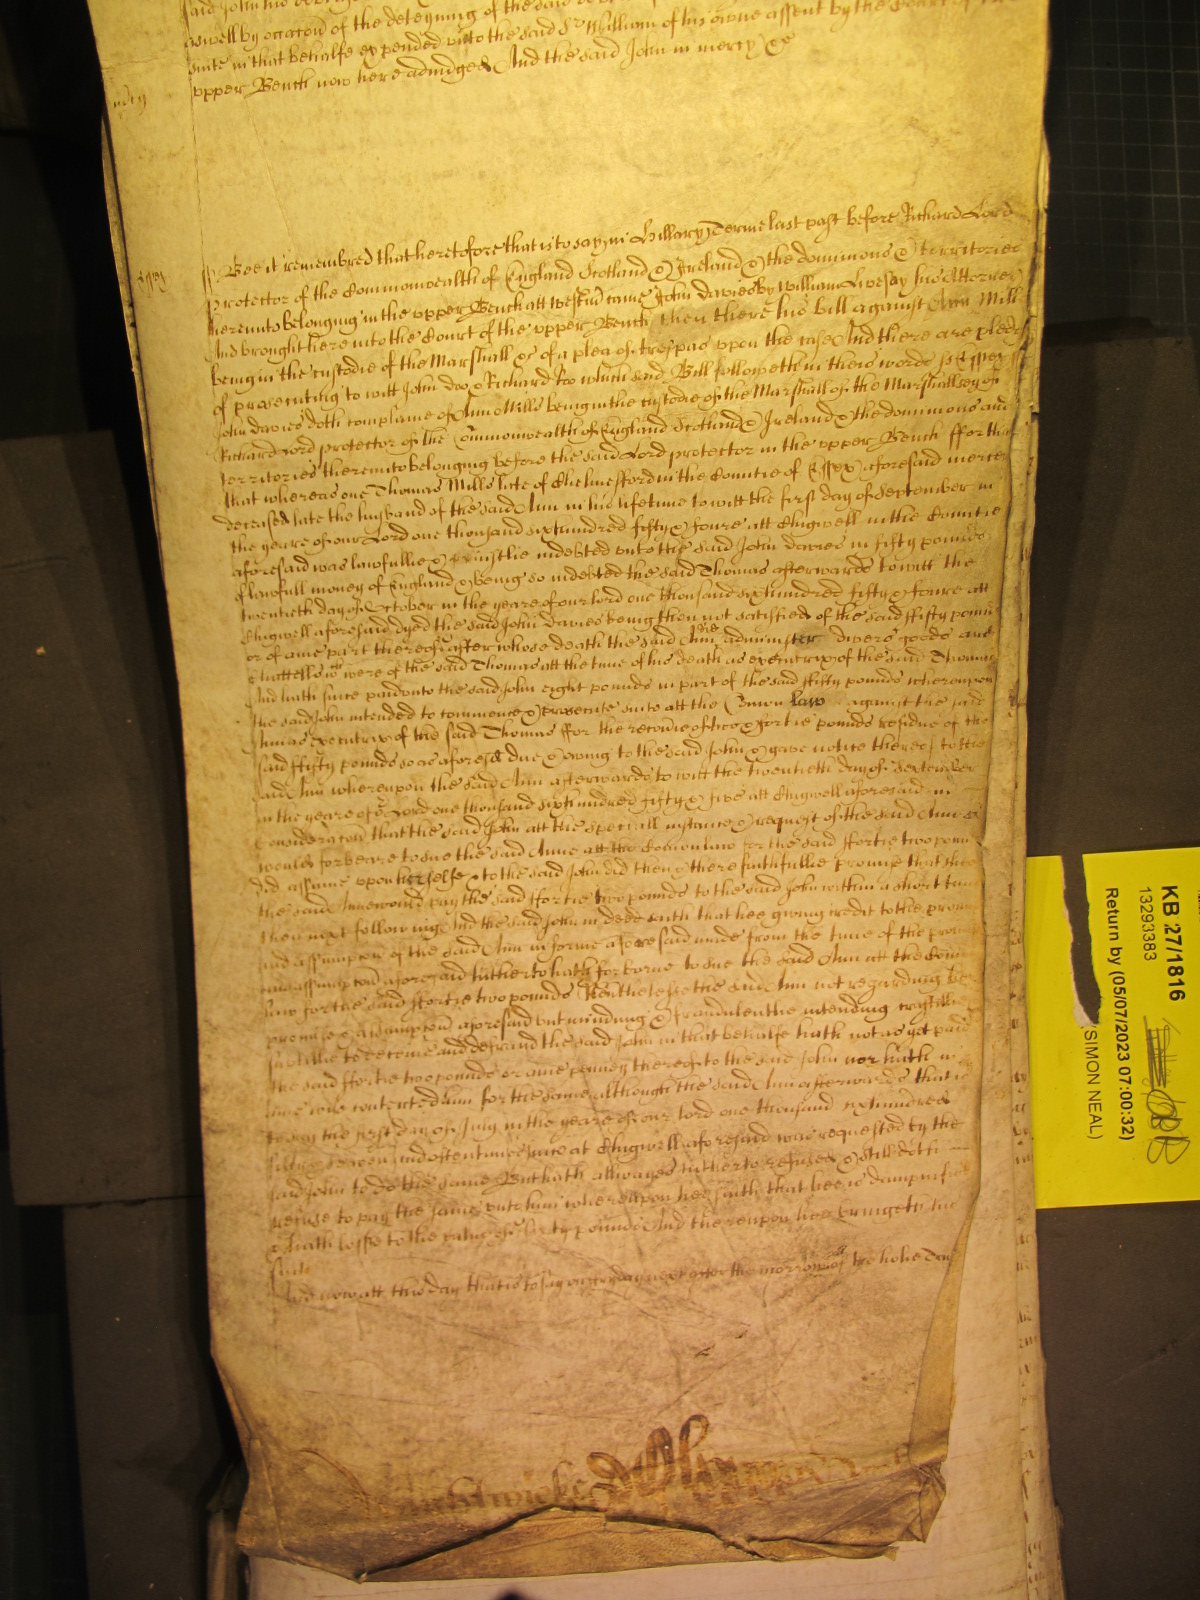 said John his
aswell by occac̃on of the deteyning of the said
suite in that behalfe expended vnto the said Sr William of his owne assent by the Court of the
vpper Bench now here adiudged And the said John in mercy &c
Essex ss Bee it remembred that heretofore that is to say in Hillary Terme last past before Richard Lord
Protector of the Commonwealth of England Scotland & Ireland & the dominions & territories
therevnto belonging in the vpper Bench att Westm̃ came John Davies by William Livesay his Attorney
And brought here into the Court of the vpper Bench then there his bill against Ann Mills
being in the custodie of the Marshall &c of a plea of trespas vpon the case And there are pledges
of prosecuting to witt John Doo & Richard Roo which said Bill followeth in theis words ss Essex ss
John Davies doth complaine of Ann Mills being in the custodie of the Marshall of the Marshallsey of
Richard Lord protector of the Commonwealth of England Scotland & Ireland & the dominions and
territories therevnto belonging before the said Lord protector in the vpper Bench ffor that
that whereas one Thomas Mills late of Chelmesford in the Countie of Essex aforesaid mercer
deceased late the husband of the said Ann in his lifetime to witt the first day of September in
the yeare of our Lord one thousand six hundred fifty & foure att Chigwell in the Countie
aforesaid was lawfullie & iustlie indebted vnto the said John Davies in fifty pounds
of lawfull money of England & being so indebted the said Thomas afterwards to witt the
twentieth day of October in the yeare of our lord one thousand six hundred fifty & foure att
Chigwell aforesaid dyed the said John Davies being then not satisfied of the said ffifty pounds
or of anie part thereof after whose death the said Ann did administer divers goods and
chattells wch were of the said Thomas att the time of his death as executrix of the said Thomas
And hath since paid vnto the said John eight pounds in part of the said ffifty pounds wherevpon
the said John intended to commence & prosecute suite att the Com̃on law against the said
Ann as executrix of the said Thomas ffor the recovⁱe of two & fortie pounds residue of the
said ffifty pounds soe as aforesd due & owing to the said John & gave notice thereof to the
said Ann wherevpon the said Ann afterwards to witt the twentieth day of September
in the yeare of or Lord one thousand six hundred fifty & five att Chigwell aforesaid in
Considerac̃on that the said John att the speciall instance & request of the said Ann
would forbeare to sue the said Anne att the Com̃on law for the said ffortie two pounds
did assume vpon herselfe & to the said John did then & there faithfullie promise that shee
the said Anne would pay the said ffortie two pounds to the said John within a short time
then next following And the said John in deed saith that hee giving credit to the promise
and assumpc̃on of the said Ann in forme aforesaid made from the time of the promise
and assumpc̃on aforesaid hitherto hath forborne to sue the said Ann att the Com̃on
law for the said ffortie two pounds Neverthelesse the said Ann not regarding her
promise & assumpc̃on aforesaid but minding & fraudulentlie intending craftilie &
subtillie to deceive and defraud the said John in that behalfe hath not as yet paid
the said ffortie two pounds or anie penny thereof to the said John nor hath
anie wise contented him for the same although the said Ann afterwards that is
to say the first day of July in the yeare of our lord one thousand six hundred
fifty & seven and oftentimes since at Chigwell aforesaid was requested by the
said John to do the same But hath allwayes hitherto refused & still doth
refuse to pay the same vnto him wherevpon hee saith that hee is dampnified
& hath losse to the value of sixty pounds And therevpon hee bringeth his
suite
And now att this day that is to say next after the morrow of the holie
KB 27/1816
13293383
Return by (05/07/2023 07:00:32)
(SIMON NEAL)